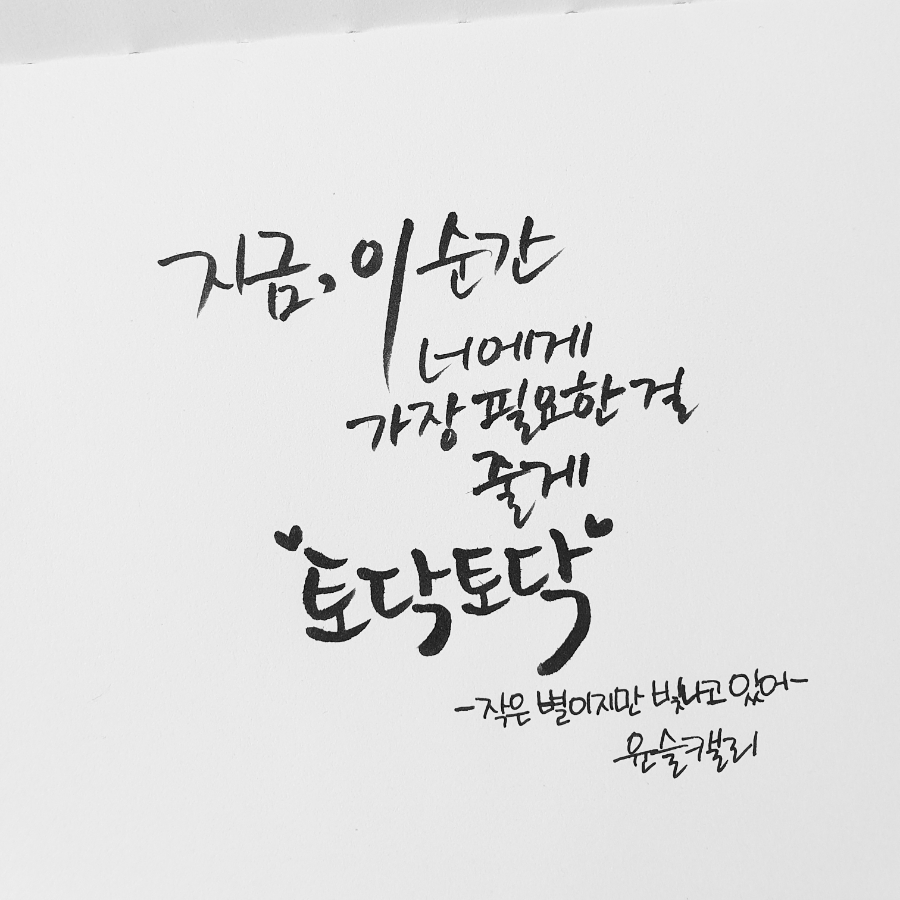 지금, 이 순간
너에게
가장 필요한 걸
줄게
토닥토닥
-작은 별이지만 빛나고 있어-
윤슬캘리